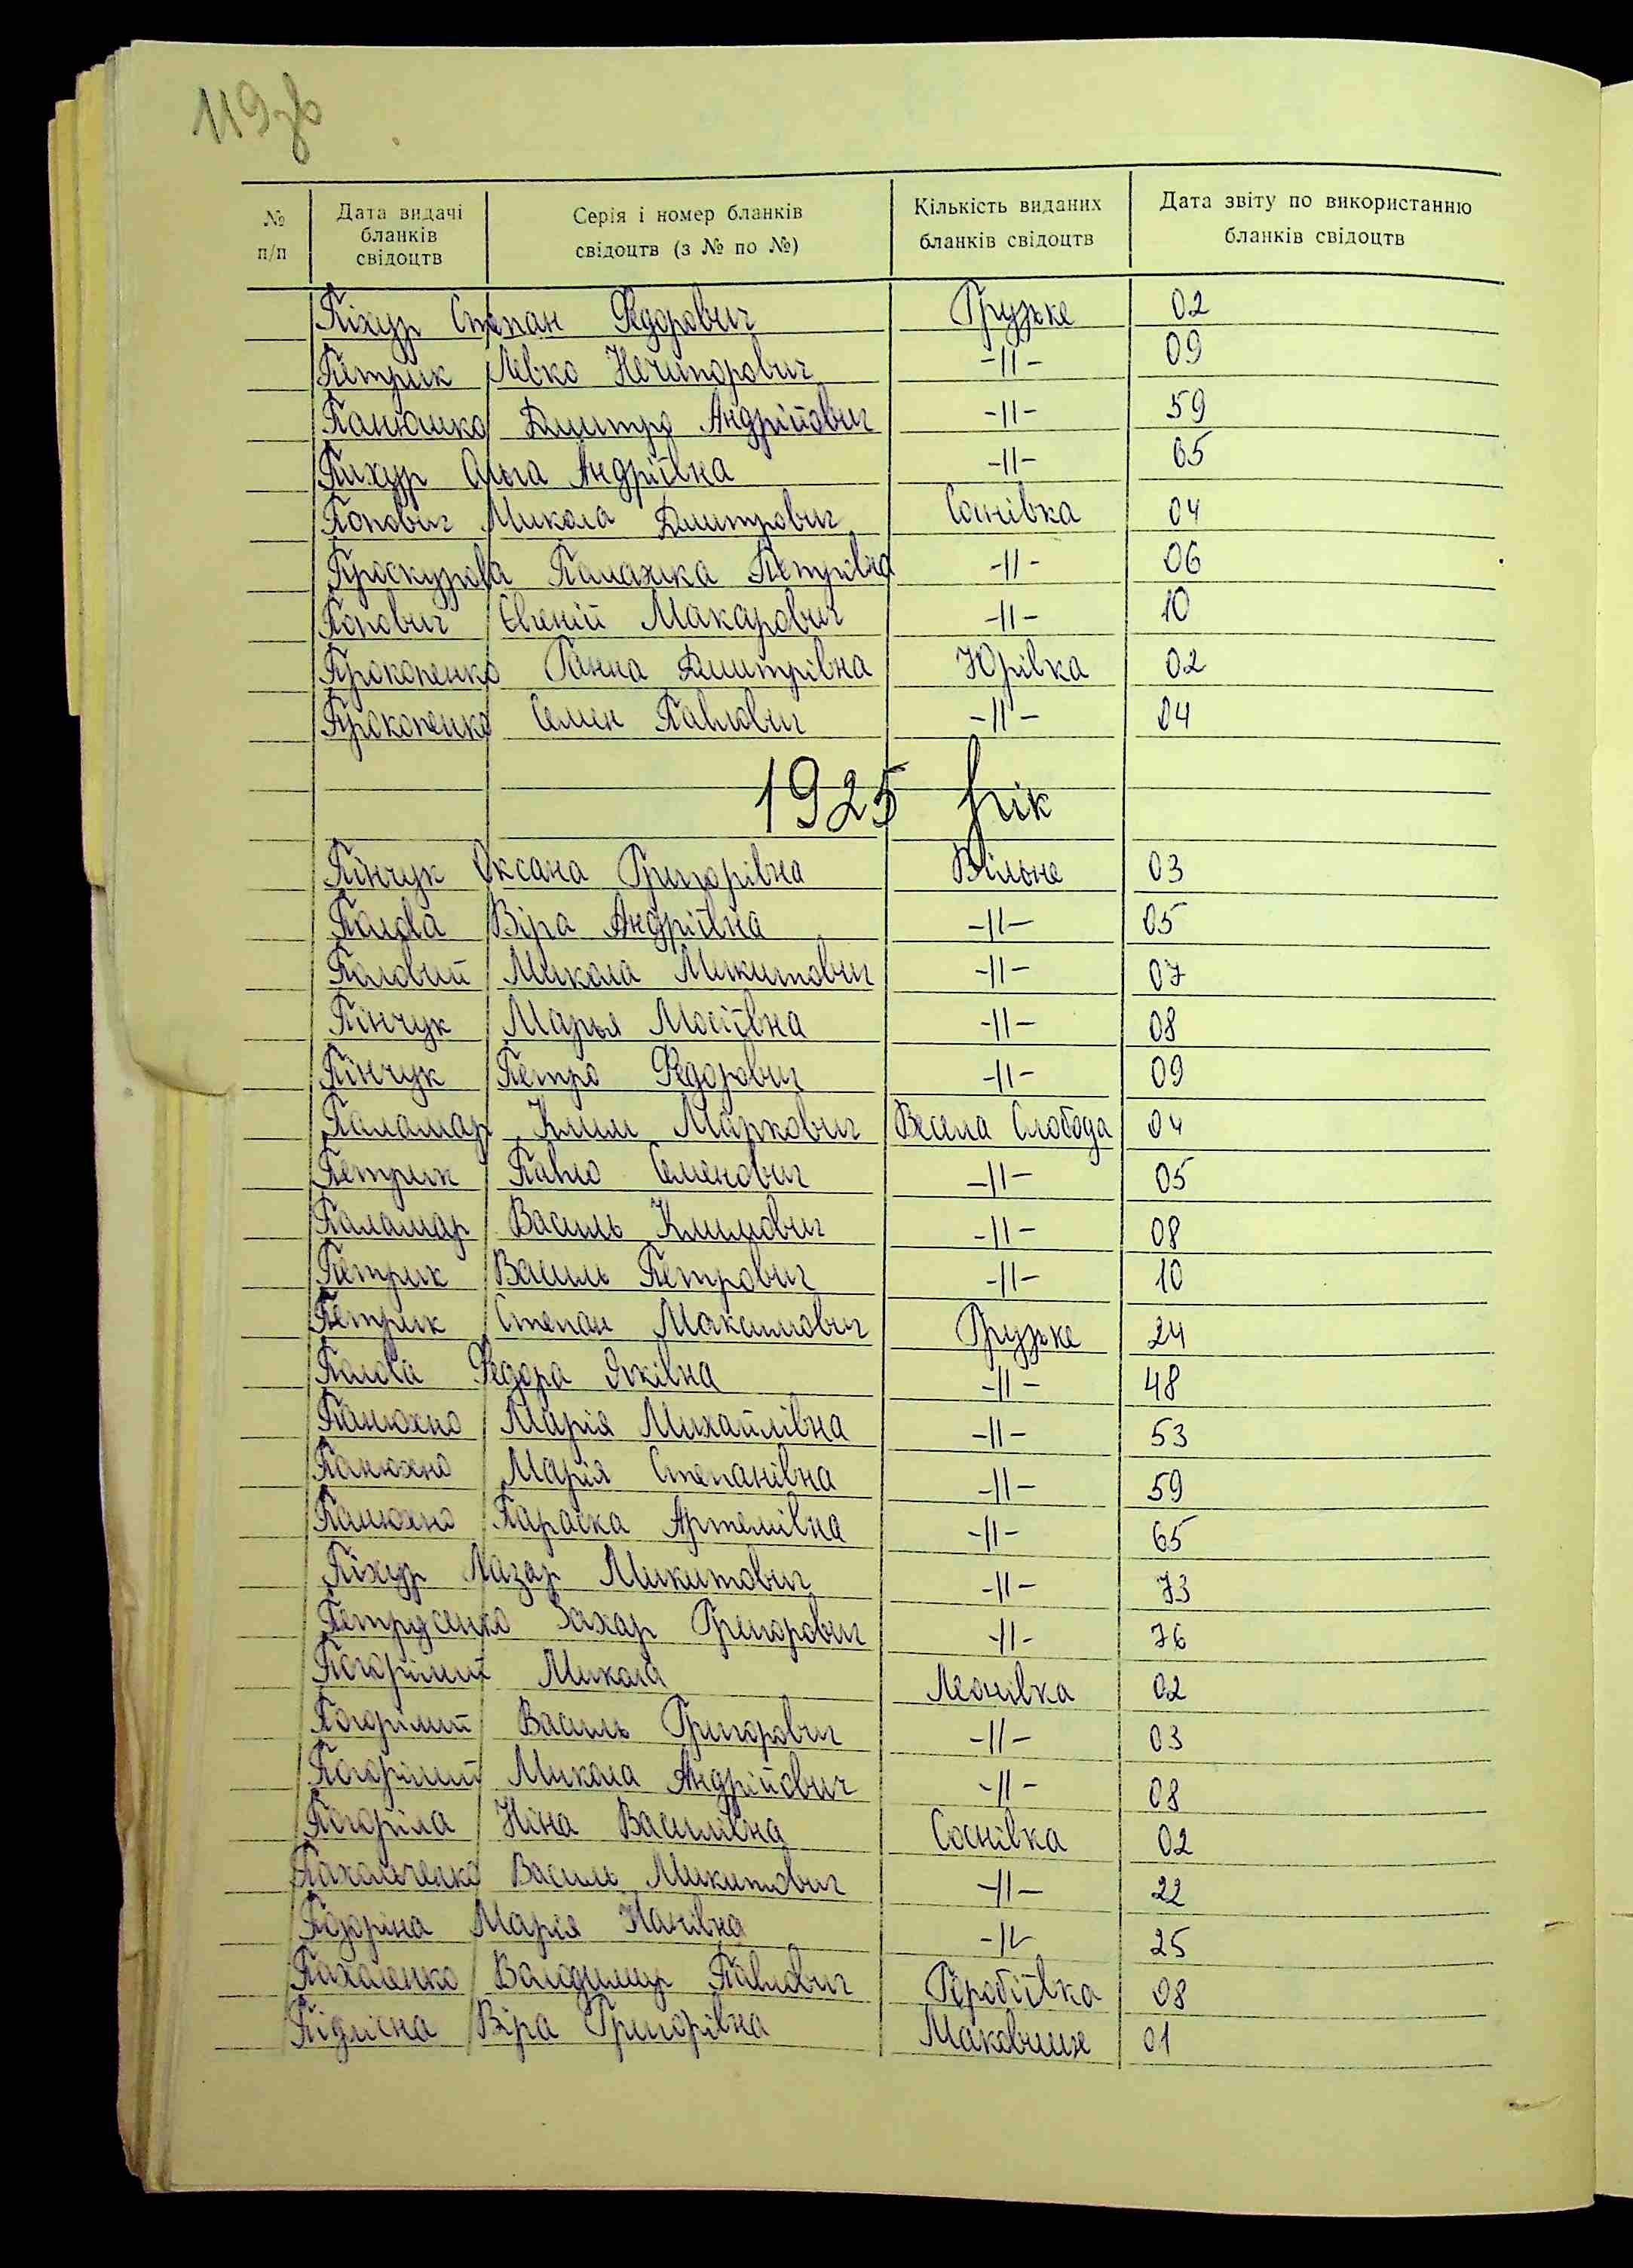 119зв
№ п/п Дата видачі бланків свідоцтв Серія і номер бланків свідоцтв (з № по №) Кількість виданих бланків свідоцтв Дата звіту по використанню бланків свідоцтв
Піхур Степан Федорович Грузьке 02
Петрик Левко Нечипорович -11- 09
Панюшко Дмитро Андрійович -11- 59
Пихур Ольга Андріївна -11- 65
Попович Микола Дмитрович Соснівка 04
Проскурова Палажка Петрівна -11- 06
Попович Євгеній Макарович -11- 10
Прокопенко Ганна Дмитрівна Юрівка 02
Прокопенко Семен Павлович -11- 04
1925 рік
Пінчук Оксана Григорівна Вільне 03
Полова Віра Андріївна -11- 05
Половий Микола Микитович -11- 07
Пінчук Марья Мосіївна -11- 08
Пінчук Петро Федорович -11- 09
Паламар Клим Маркович Весела Слобода 04
Петрик Павло Семенович -11- 05
Паламар Василь Климович -11- 08
Петрик Василь Петрович -11- 10
Петрик Степан Максимович Грузьке 24
Полова Федора Яківна -11- 48
Панюхно Марія Михайлівна -11- 53
Панюхно Марія Степанівна -11- 59
Панюхно Параска Артемівна -11- 65
Піхур Лазар Микитович -11- 73
Петрусенко Захар Григорович -11- 76
Погорілий Микола Леонівка 02
Погорілий Василь Григорович -11- 03
Погорілий Микола Андрійович -11- 08
Погоріла Ніна Василівна Соснівка 02
Пахольченко Василь Микитович -11- 22
Марія -11- 25
Пахаленко Володимир Павлович Горобіївка 08
Підлісна Віра Григорівна Маковище 01